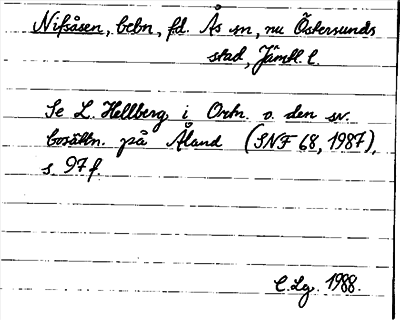 Nifsåsen, bebn, fd. Ås sn, nu Östersunds
stad, Jämtl. l.
Se L. Hellberg i Ortn. o. den sv.
bosättn. på Åland (SNF 68, 1987),
s. 97 f.
C. Lg. 1988.